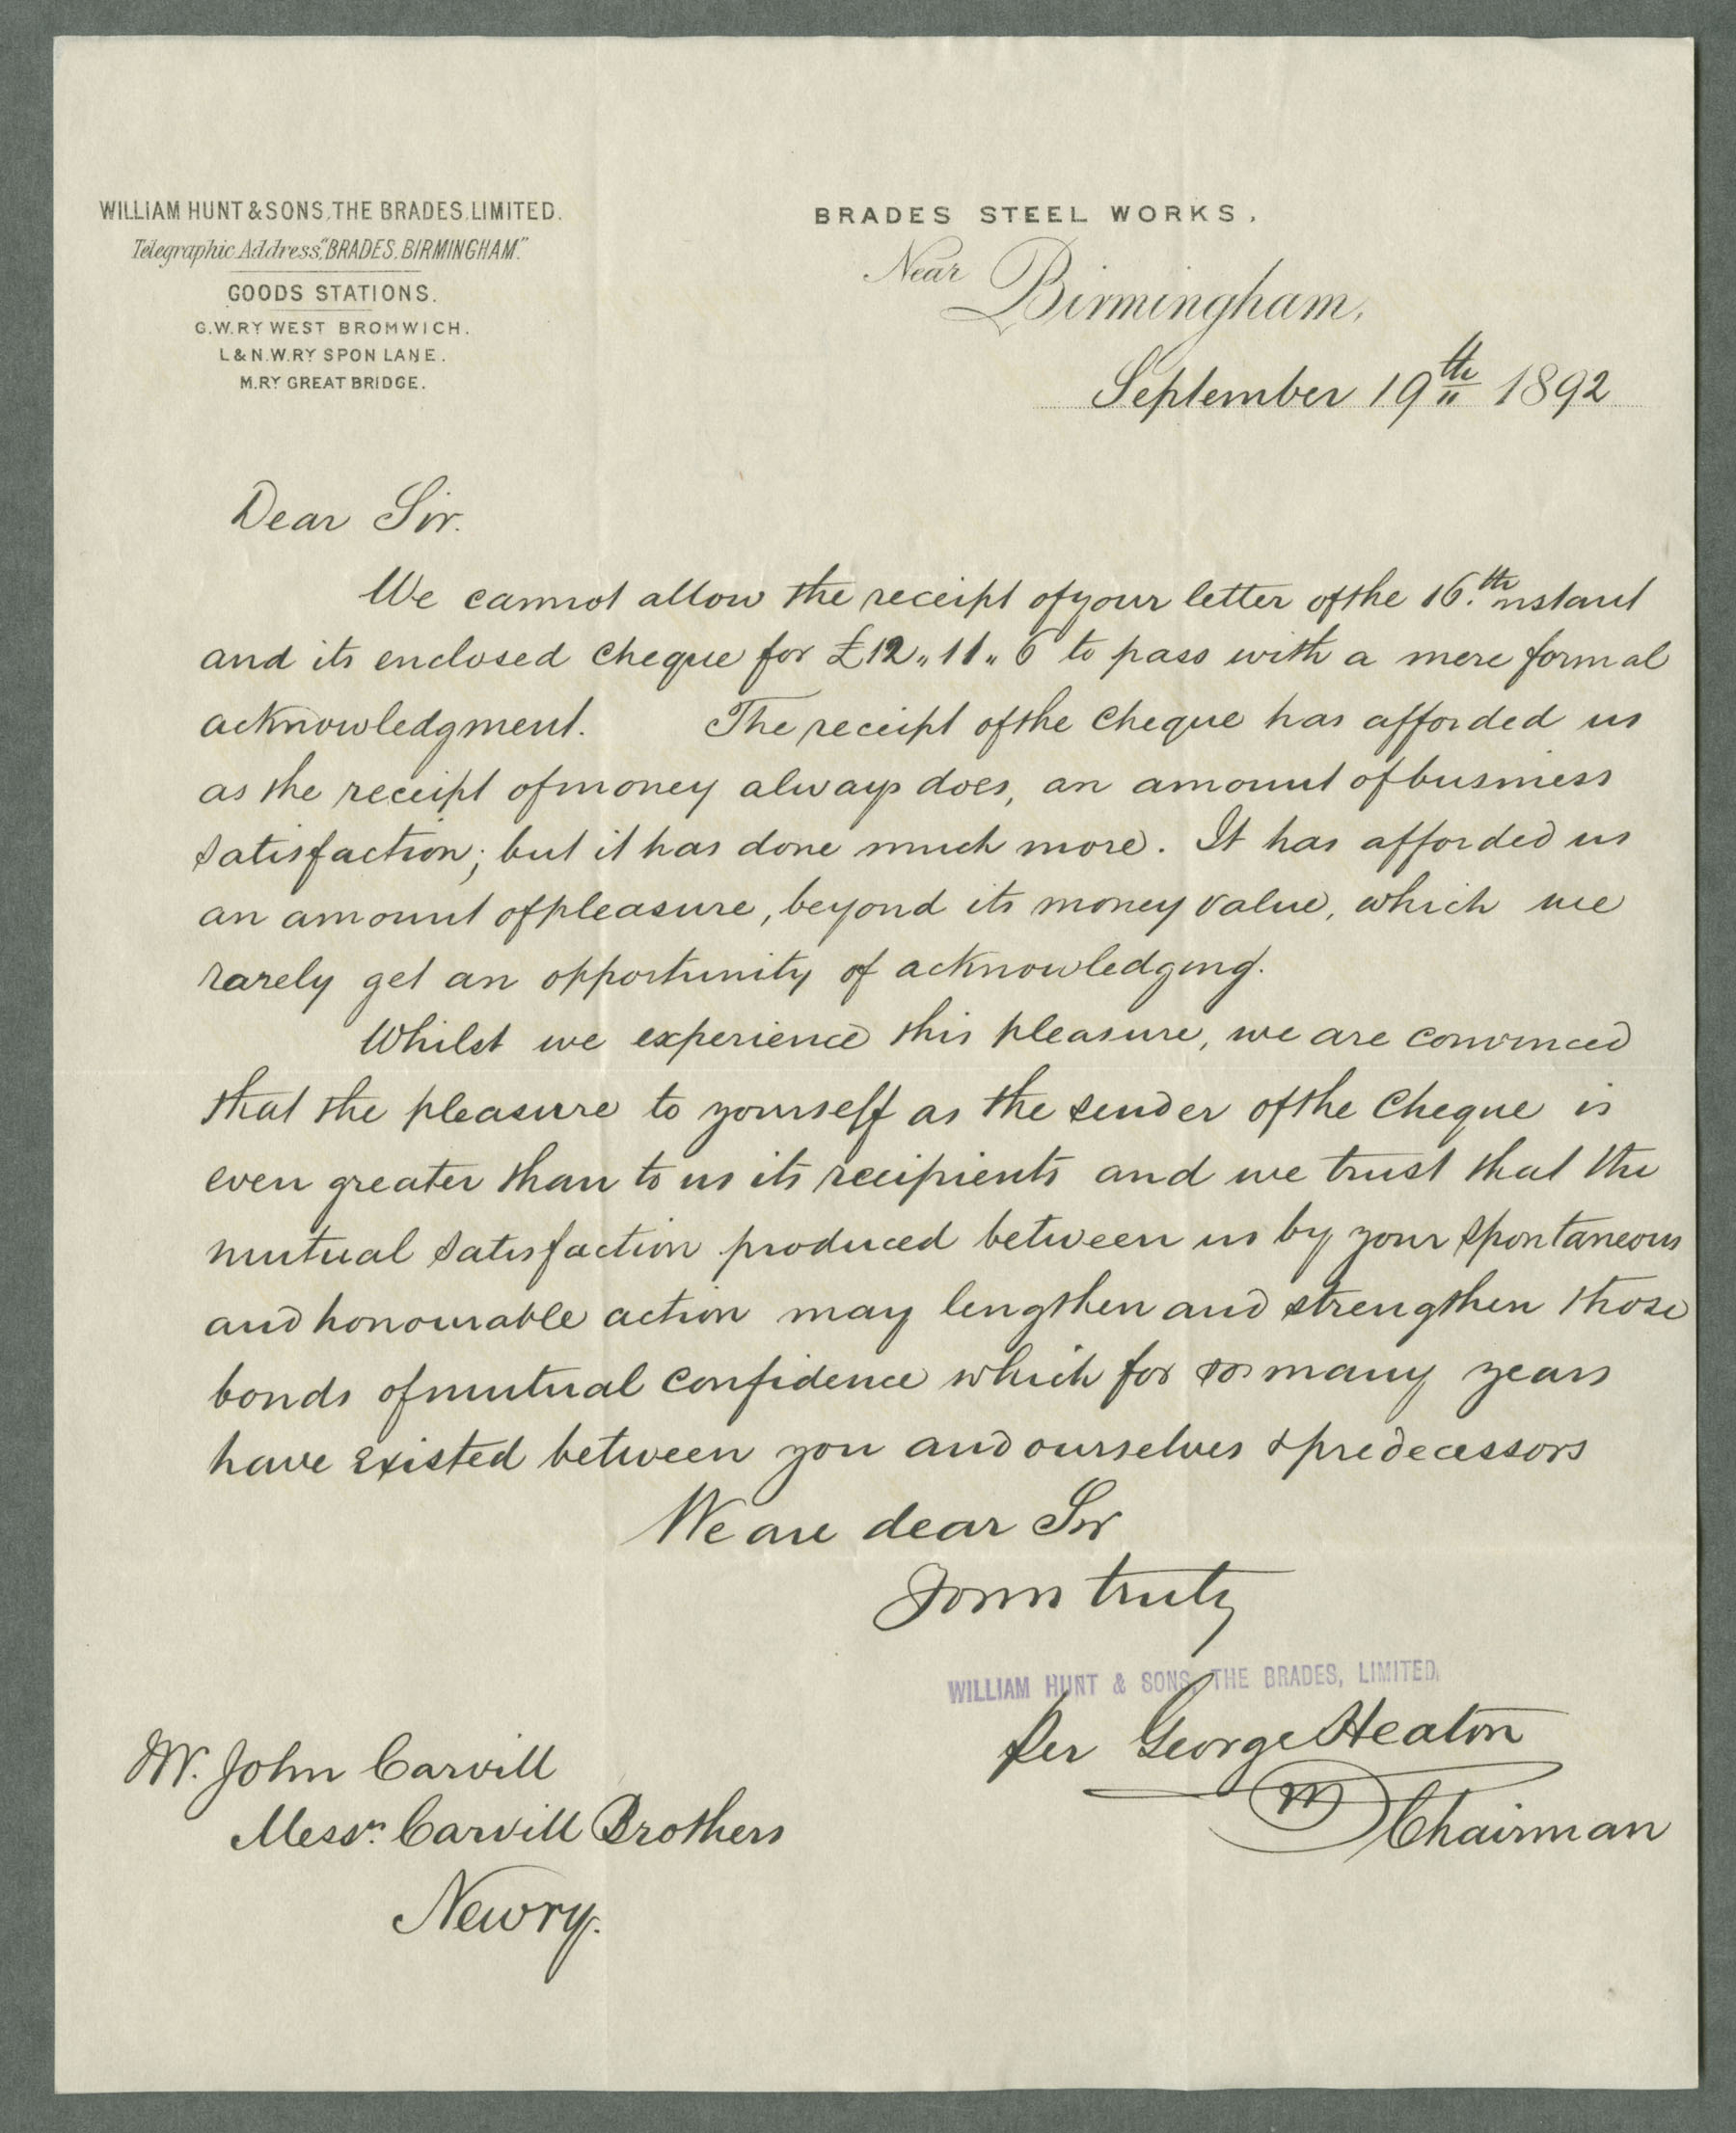 WILLIAM HUNT & SONS, THE BRADES, LIMITED.
Telegraphic Address, "BRADES, BIRMINGHAM."
GOODS STATIONS.
G.W.RY WEST BROMWICH.
L & N.W.RY SPON LANE.
M.RY GREAT BRIDGE.
BRADES STEEL WORKS,
Near Birmingham,
September 19th 1892
Dear Sir.
We cannot allow the receipt of your letter of the 16.th instant
and its enclosed cheque for £12,, 11,, 6 to pass with a mere formal
acknowledgment. The receipt of the cheque has afforded us
as the receipt of money always does, an amount of business
satisfaction; but it has done much more. It has afforded us
an amount of pleasure, beyond its money value, which we
rarely get an opportunity of acknowledging.
Whilst we experience this pleasure, we are convinced
that the pleasure to yourself as the sender of the cheque is
even greater than to us its recipients and we trust that the
mutual satisfaction produced between us by your spontaneous
and honourable action may lengthen and strengthen those
bonds of mutual confidence which for so many years
have existed between you and ourselves & predecessors
We are dear Sir
Yours truly
WILLIAM HUNT & SONS, THE BRADES, LIMITED.
per George Heaton
Chairman
Mr. John Carvill
Messrs. Carvill Brothers
Newry.